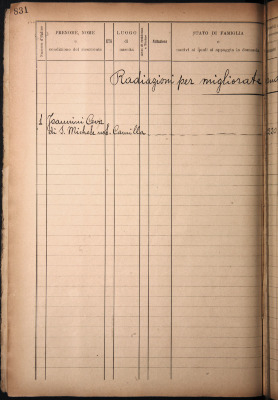 831
Numero d'Ordine
PRENOME, NOME
e
condizione del ricorrente
ETÀ
LUOGO
di
nascita
Abitazione
STATO DI FAMIGLIA
e
motivi ai quali si appoggia la domanda
Radiazioni per migliorate
1 Joannini Ceva
di S. Michele Camilla